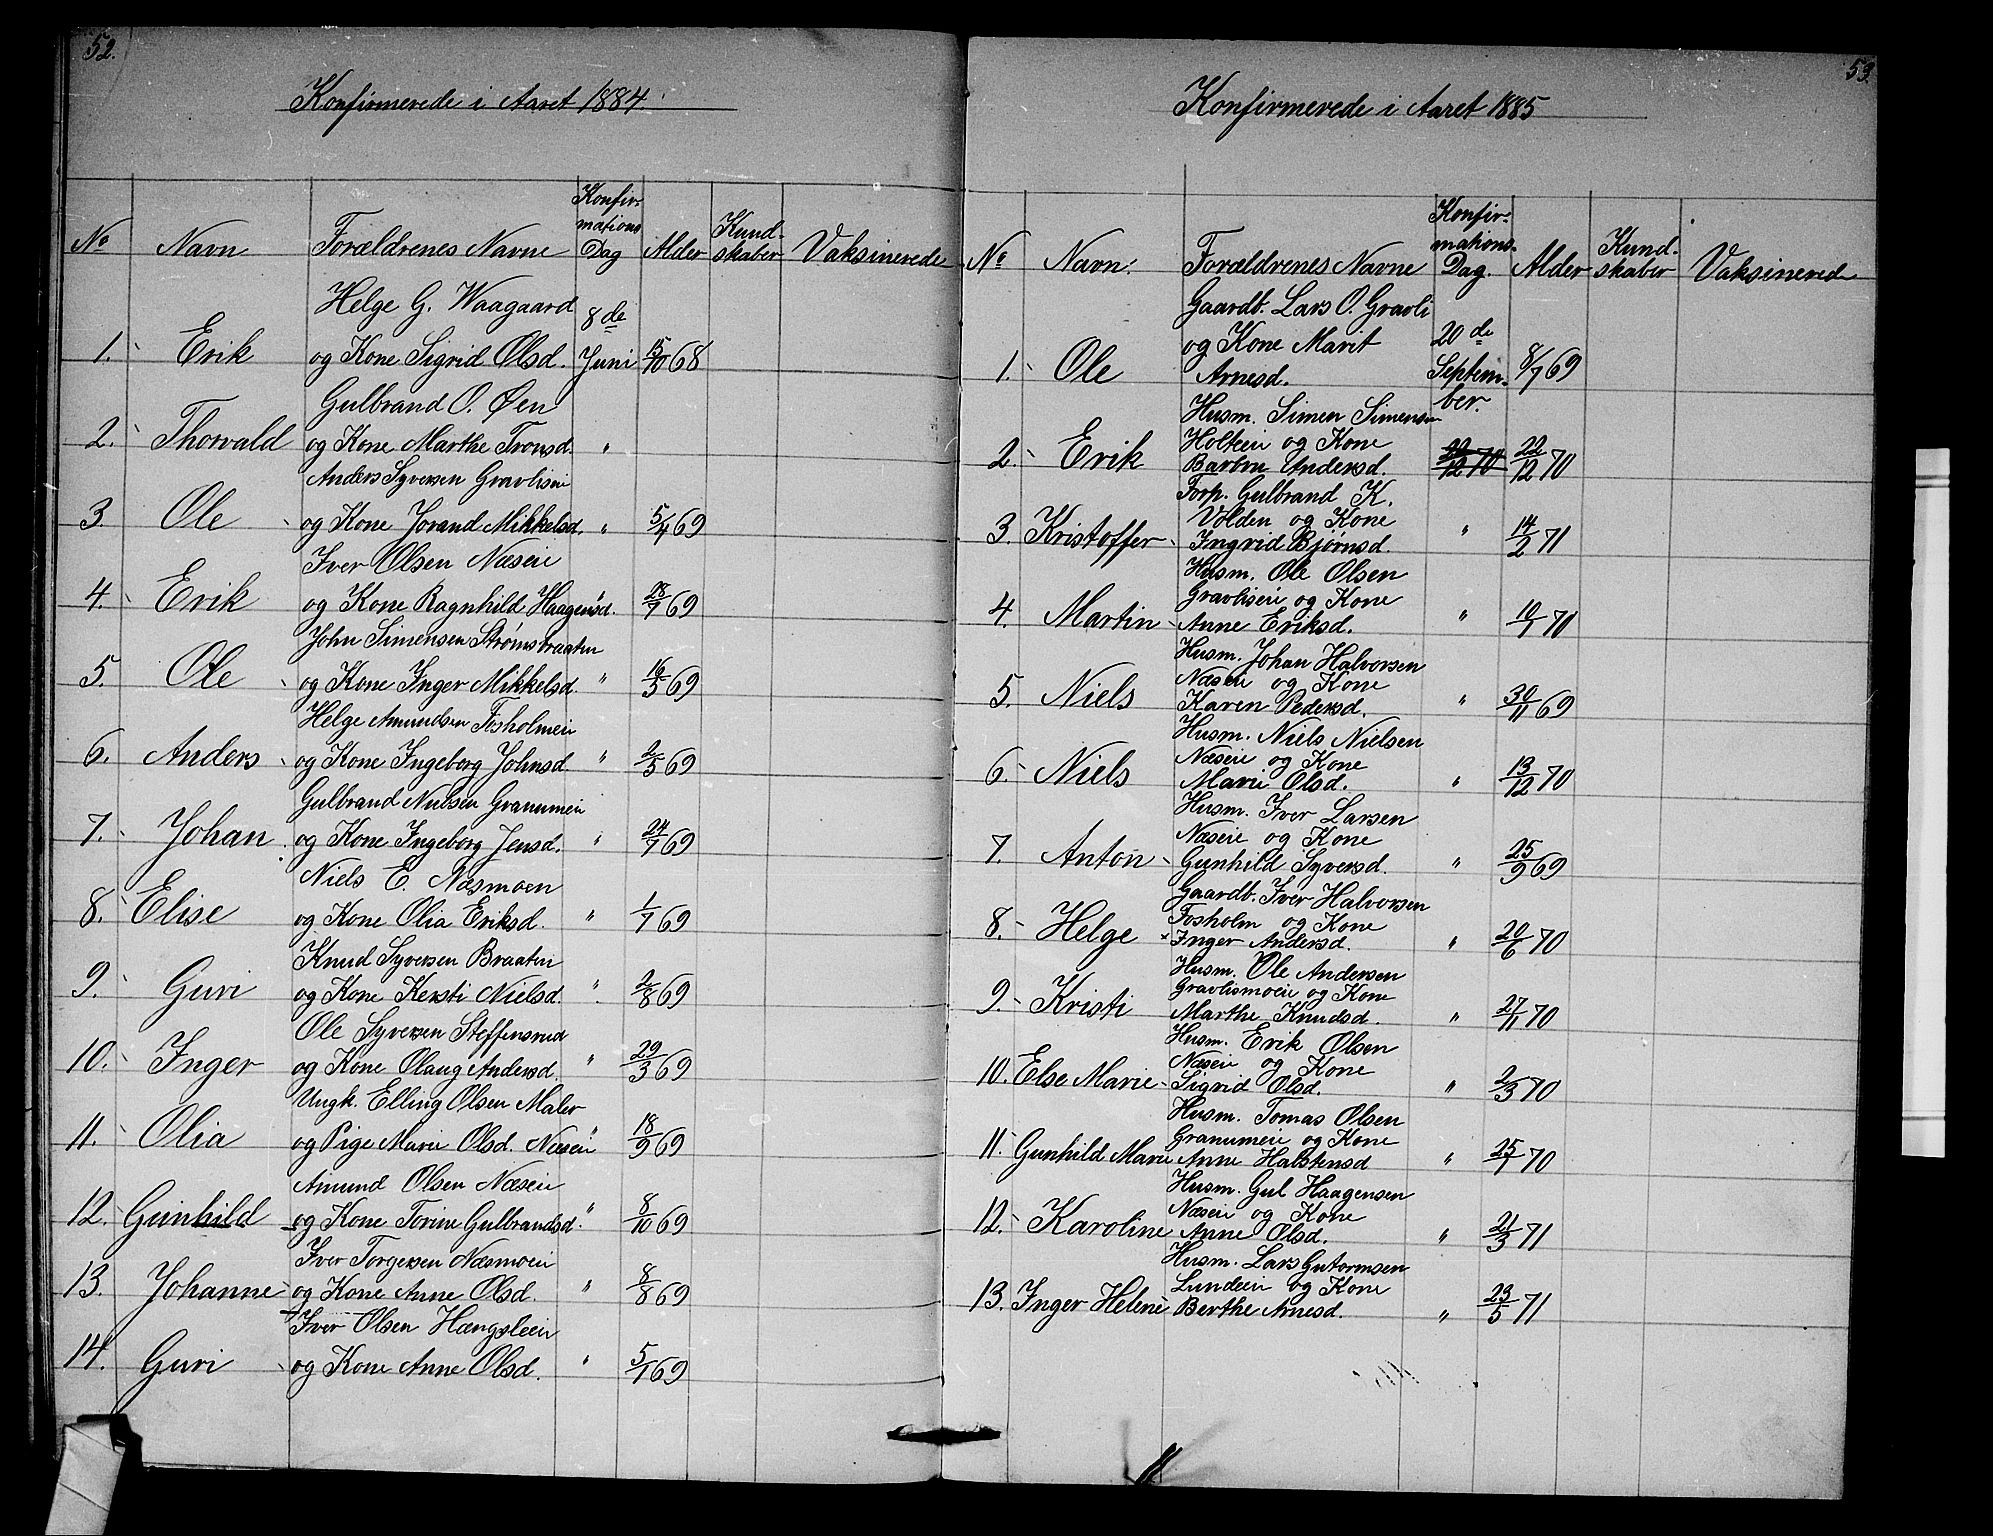 52.
Konfirmerede i Aaret 1884
No Navn Forældrenes Navne Konfir-mations Dag Alder Kund-skaber Vaksinerede
Helge G. Waagaard 8de
1. Erik og Kone Sigrid Olsd. Juni 15/10 68
Gulbrand O. Øen
2. Thorvald og Kone Marthe Tronsd. "
Anders Syversen Gravlieie
3. Ole og Kone Jorand Mikkelsd. " 5/4 69
Iver Olsen Næseie
4. Erik og Kone Ragnhild Haagensd. " 28/7 69
John Simensen Strømsbraaten
5. Ole og Kone Inger Mikkelsd. " 16/5 69
Helge Amundsen Fosholmeie
6. Anders og Kone Ingeborg Johnsd. " 2/5 69
Gulbrand Nielsen Granumeie
7. Johan og Kone Ingeborg Jensd. " 24/7 69
Niels E. Næsmoen
8. Elise og Kone Olia Eriksd. " 1/7 69
Knud Syversen Braaten
9. Guri og Kone Kersti Nielsd. " 2/8 69
Ole Syversen Steffensrud
10. Inger og Kone Olaug Andersd. " 29/3 69
Ungk. Elling Olsen Maler
11. Olia og Pige Marie Olsd. Næseie " 18/9 69
Amund Olsen Næseie
12. Gunhild og Kone Torine Gulbrandsd. " 8/10 69
Iver Torgersen Næsmoeie
13. Johanne og Kone Anne Olsd. " 8/8 69
Iver Olsen Hængsleeie
14. Guri og Kone Anne Olsd. " 5/1 69
53.
Konfirmerede i Aaret 1885
No Navn. Forældrenes Navne Konfir-mations-Dag. Alder Kund-skaber Vaksinerede
Gaardb. Lars O. Gravli
og Kone Marit 20de
1. Ole Arnesd. Septem-ber. 8/7 69
Husm. Simen Simensen
Holteie og Kone
2. Erik Barbru Andersd. 22/12 70 22/12 70
Forp. Gulbrand K.
Volden og Kone
3. Kristoffer Ingrid Bjørnsd. " 14/2 71
Husm. Ole Olsen
Gravlieie og Kone
4. Martin Anne Eriksd. " 10/1 70
Husm. Johan Halvorsen
Næseie og Kone
5. Niels Karen Pedersd. " 30/11 69
Husm. Niels Nielsen
Næseie og Kone
6. Niels Marie Olsd. " 13/12 70
Husm. Iver Larsen
Næseie og Kone
7. Anton Gunhild Syversd. " 25/9 69
Gaardb. Iver Halvorsen
Fosholm og Kone
8. Helge × Inger Andersd. " 20/6 70
Husm. Ole Andersen
Gravlismoeie og Kone
9. Kristi Marthe Knudsd. " 27/11 70
Husm. Erik Olsen
Næseie og Kone
10. Else Marie Sigrid Olsd. " 2/3 70
Husm. Tomas Olsen
Granumeie og Kone
11. Gunhild Marie Anne Halstensd " 25/1 70
Husm. Gul Haagensen
Næseie og Kone
12. Karoline Anne Olsd. " 21/3 71
Husm. Lars Gutormsen
Lundeeie og Kone
13. Inger Helene Berthe Arnesd. " 23/5 71